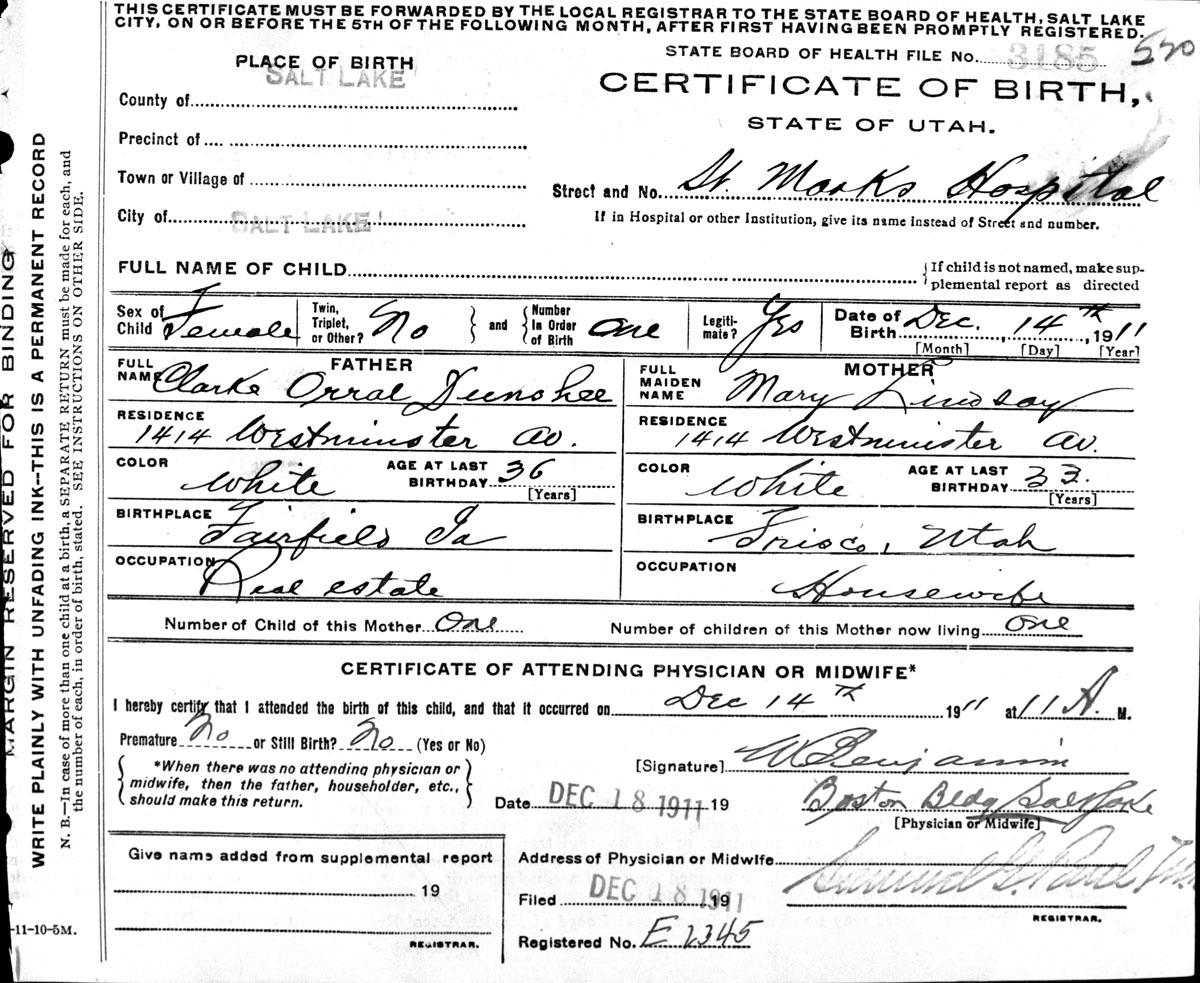 THIS CERTIFICATE MUST BE FORWARDED BY THE LOCAL REGISTRAR TO THE STATE BOARD OF HEALTH, SALT LAKE
CITY, ON OR BEFORE THE 5TH OF THE FOLLOWING MONTH, AFTER FIRST HAVING BEEN PROMPTLY REGISTERED.
STATE BOARD OF HEALTH FILE No. 3185 520
PLACE OF BIRTH
SALT LAKE
CERTIFICATE OF BIRTH,
County of
STATE OF UTAH.
Precinct of
Town or Village of
Street and No. St. Marks Hospital
City of SALT LAKE
If in Hospital or other Institution, give its name instead of Street and number.
FULL NAME OF CHILD
If child is not named, make sup-
plemental report as directed
Sex of Child Female
Twin, Triplet, or Other? No
and
Number In Order of Birth one
Legiti-mate? Yes
Date of Birth Dec. 14th, 1911
[Month] [Day] [Year]
FATHER
FULL NAME Clarke Orral Dunshee
RESIDENCE
1414 Westminster Av.
COLOR White
AGE AT LAST BIRTHDAY 36
[Years]
BIRTHPLACE Fairfield Ia
OCCUPATION Real estate
MOTHER
FULL MAIDEN NAME Mary Lindsay
RESIDENCE
1414 Westminster Av.
COLOR White
AGE AT LAST BIRTHDAY 33.
[Years]
BIRTHPLACE Frisco, Utah
OCCUPATION Housewife
Number of Child of this Mother One
Number of children of this Mother now living One
CERTIFICATE OF ATTENDING PHYSICIAN OR MIDWIFE*
I hereby certify that I attended the birth of this child, and that it occurred on Dec 14th 1911 at 11 A. M.
Premature No or Still Birth? No (Yes or No)
*When there was no attending physician or
midwife, then the father, householder, etc.,
should make this return.
[Signature] W Benjamin
Date DEC 18 1911 19
Boston Bldg Salt Lake
[Physician or Midwife]
Give name added from supplemental report
19
REGISTRAR.
Address of Physician or Midwife
Filed DEC 18 1911 19
Samuel G. Paul
REGISTRAR.
Registered No. E 2345
-11-10-5M.
MARGIN RESERVED FOR BINDING
WRITE PLAINLY WITH UNFADING INK--THIS IS A PERMANENT RECORD
N. B.—In case of more than one child at a birth, a SEPARATE RETURN must be made for each, and
the number of each, in order of birth, stated. SEE INSTRUCTIONS ON OTHER SIDE.